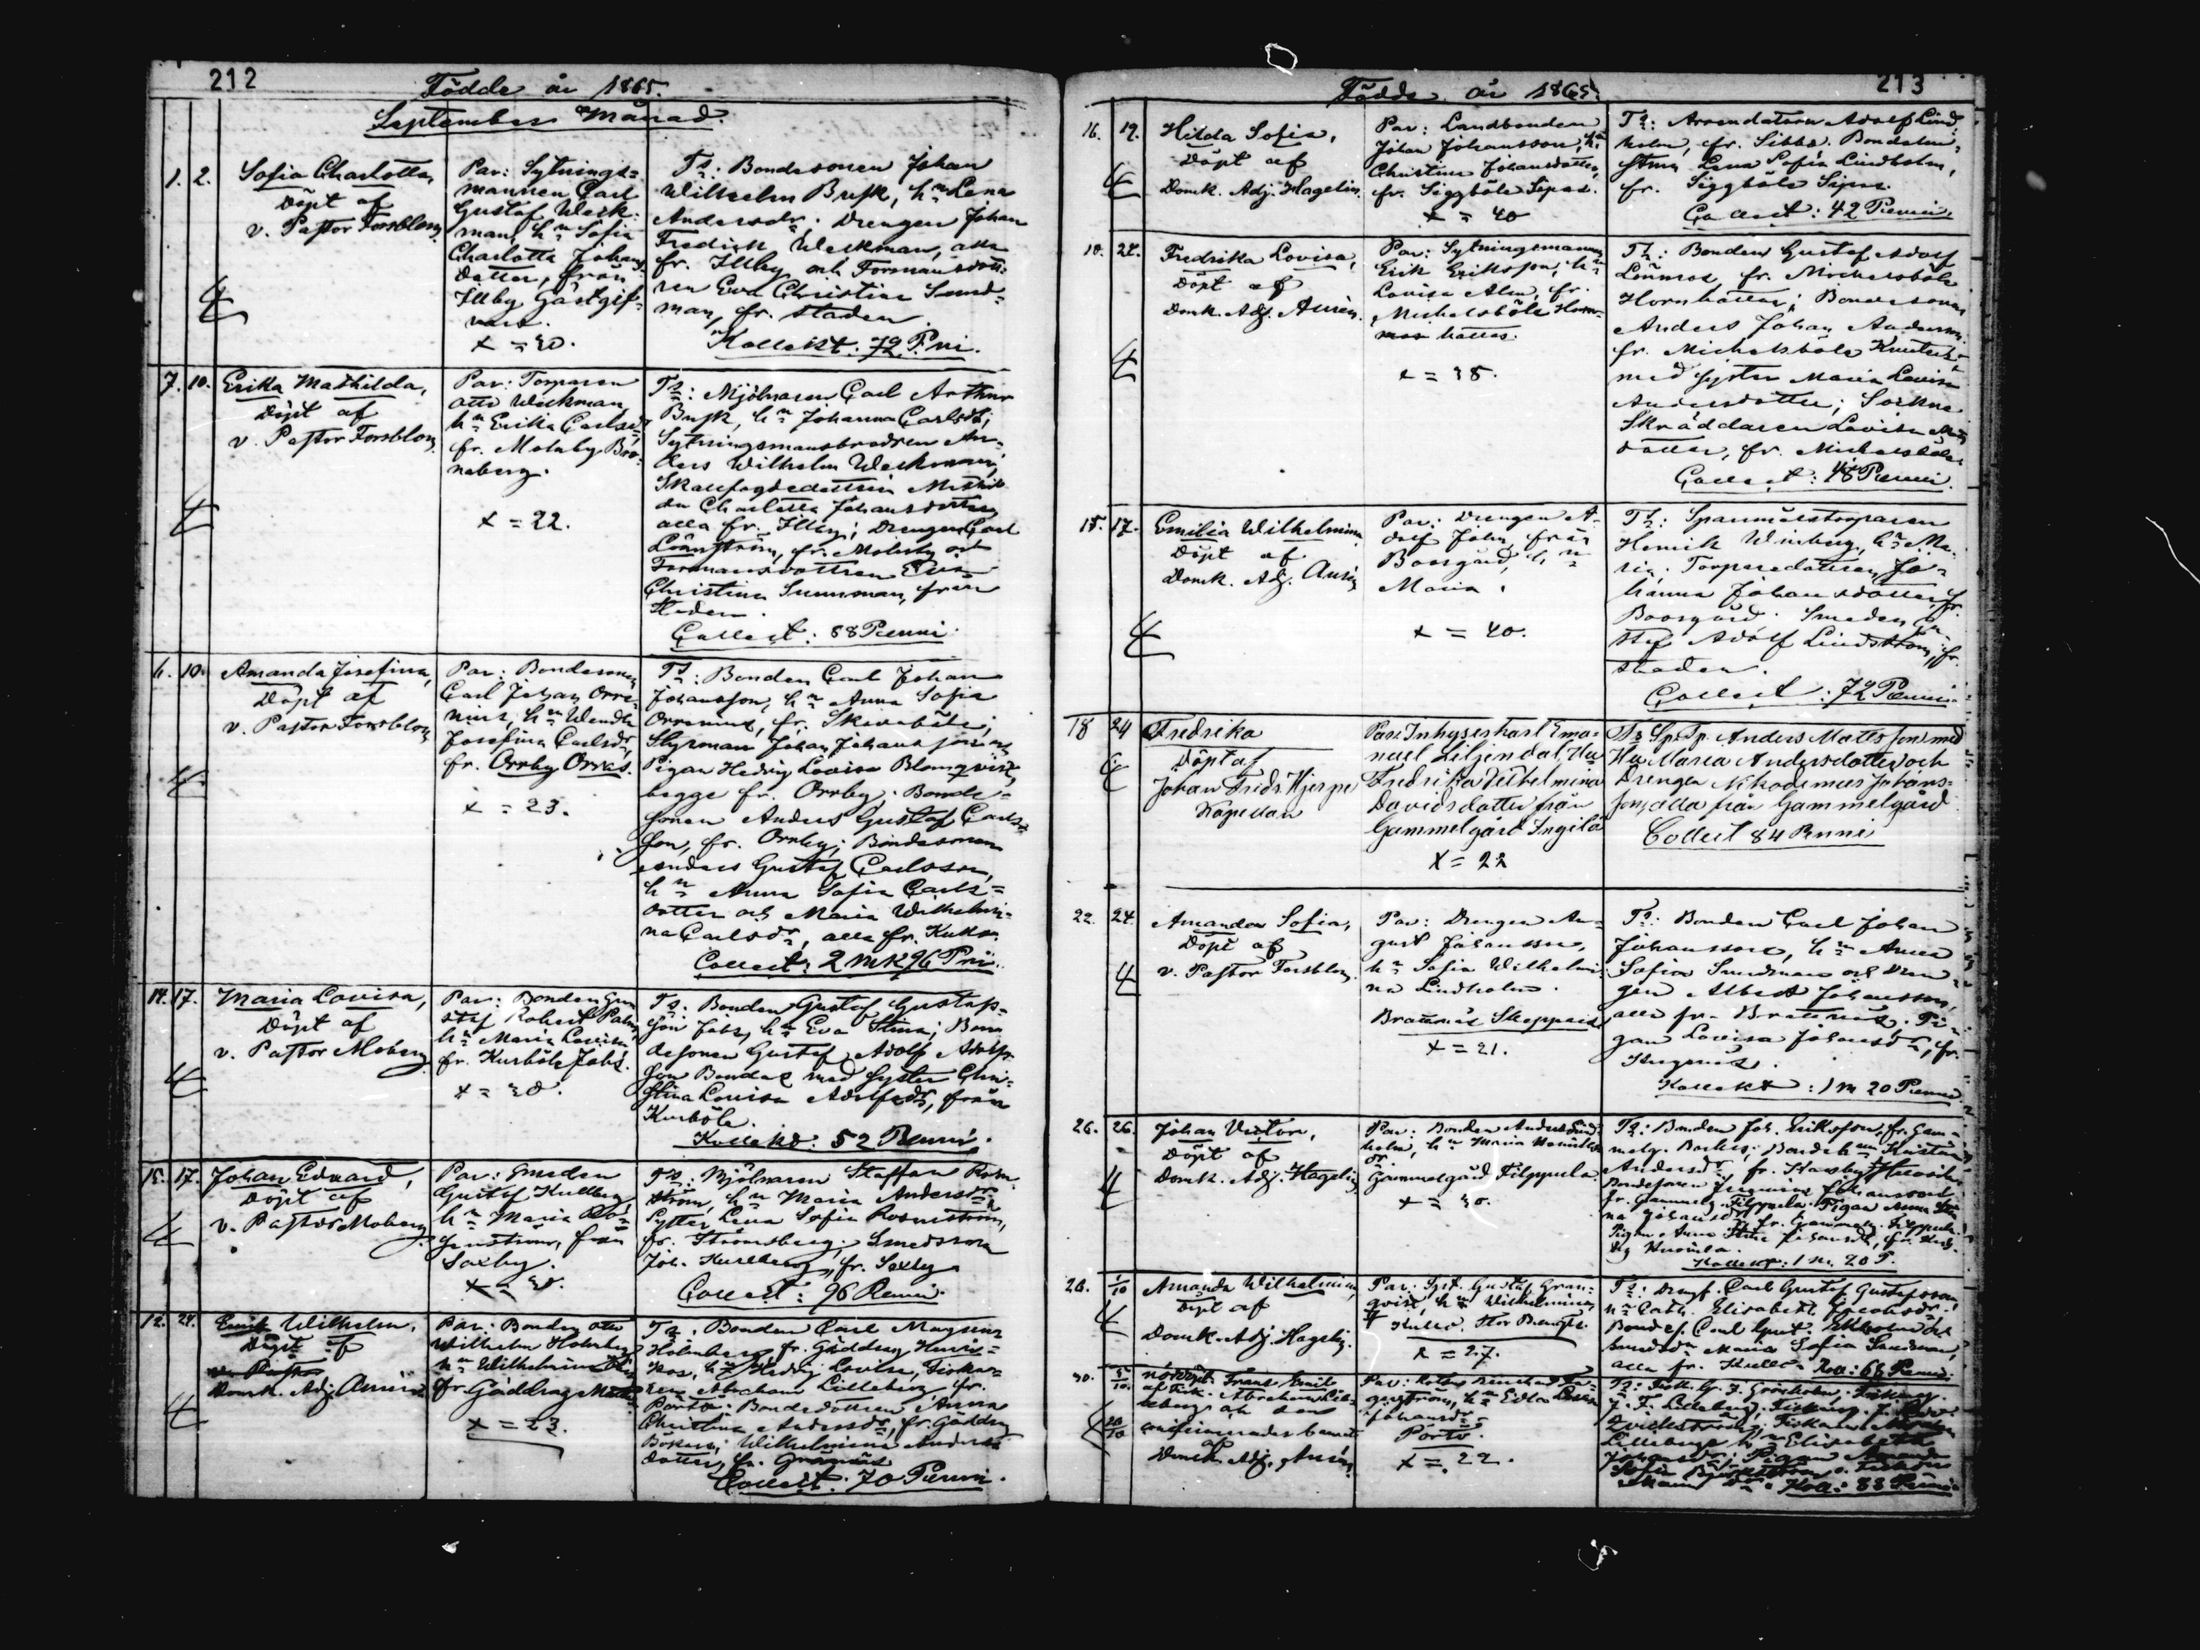 212
Födde år 1865.
September Månad.
1. 2. Sofia Charlotta,
Döpt af
v. Pastor Forsblom.
Par: Sytnings=
mannen Carl
Gustaf Weck-
man, hn Sofia
Charlotta Johans
dotter, från
Illby Gästgif-
vars.
x = 30.
Ts: Bondesonen Johan
Wilhelm Busk, hn Lena
Andersdr. Drengen Johan
Fredrik Weckman, alla
fr. Illby och Formansdott-
ren Eva Christina Sund-
man, fr. staden.
Kollekt: 72 P:ni.
7. 10. Erika Mathilda,
Döpt af
v. Pastor Forsblom
Par: Torparen
Otto Weckman
hn Erika Carlsd.
fr. Molnby Bro-
neberg.
x = 22.
Ts: Mjölnaren Carl Arthur
Busk, hn Johanna Carlsdr;
Sytningsmansbrodren An-
ders Wilhelm Weckman,
Skallfogdedottren Mathil
da Charlotta Johansdotter,
alla fr. Illby; Drengen Carl
Lönnström, fr. Molnby och
Formansdottren Eva
Christina Sunnman, från
staden.
Collect: 88 Penni.
6. 10. Amanda Josefina,
Döpt af
v. Pastor Forsblom
Par: Bondesonen
Carl Johan Orre-
nius, hn Wendla
Josefina Carlsdr,
fr. Orrby Orras.
x = 23.
Ts: Bonden Carl Johan
Johansson, hn Anna Sofia
Orrenius, fr.
Styrman Johan Johansson och
Pigan Hedvig Lovisa Blomqvist,
begge fr. Orrby; Bonde-
sonen Anders Gustaf Carls-
son, fr. Orrby; Bondesonen
Anders Gustaf Carlsson,
hn Anna Sofia Carls=
dotter och Maria Wilhelmi-
na Carlsdr, alla fr.
Collect: 2 mk 96 P:ni.
14. 17. Maria Lovisa,
Döpt af
v. Pastor Moberg
Par: Bonden Gu
staf Robert Palm,
hn Maria Lovisa
fr. Kurböle Jabs.
x = 30.
Ts: Bonden Gustaf Gustafs-
son Jabs, hn Eva Stina; Bon
desonen Gustaf Adolf Adolfs-
son Bondas med syster Chri-
stina Lovisa Adolfsdr, från
Kurböle.
Kollekt: 52 Penni.
15. 17. Johan Edvard,
Döpt af
v. Pastor Moberg
Par: Smeden
Gustaf Kullberg
hn Maria Ro-
senström, från
Saxby.
x = 30.
Ts: Mjölnaren Staffan Rosen-
ström, hn Maria Andersdr
Syster Lena Sofia Rosenström,
fr. Strömsberg; Smedsson
Joh. Kullberg, fr. Saxby
Collect: 96 Penni.
12. 24. Emil Wilhelm.
Döpt af
v. Pastor
Domk. Adj.
Par: Bonden Otto
Wilhelm Holmberg
hn Wilhelmina
fr. Gäddrag
x = 23.
Ts: Bonden Carl Magnus
Holmberg, fr. Gäddrag
hn Hedvig Lovisa,
Abraham Lilleberg, fr.
Pörtö. Bondedottren Anna
Christina Andersdr, fr. Gäddrag
Bökers; Wilhelmina Anders
dotter, fr.
Collect: 70 Penni.
213
Födde år 1865.
16. 19. Hilda Sofia,
Döpt af
Domk. Adj. Hagelin.
Par: Landbonden
Johan Johansson, hn
Christina Johansdotter,
fr. Siggböle Sipas.
x = 40
Ts: Arrendatorn Adolf Lind
holm, fr. Sibbo. Bondehu-
strun Lena Sofia Lindholm,
fr. Siggböle Sipas.
Collect: 42 Penni.
18. 24. Fredrika Lovisa,
Döpt af
Domk. Adj.
Par: Sytningsmannen
Erik Eriksson, hn
Lovisa Alm, fr.
Michelsböle Horn-
hattas.
x = 38.
Ts: Bonden Gustaf Adolf
Lönnros, fr. Michelsböle
Hornhattas; Bondesonen
Anders Johan Andersson
fr. Michelsböle Knuters
med syster Maria Lovisa
Andersdotter; Sockne
Skräddaren Lovisa
dotter, fr. Michelsböle
Collect: 48 Penni.
15. 17. Emilia Wilhelmina
Döpt af
Domk. Adj.
Par: Drengen A-
dolf John, från
Boosgård, hn
Maria.
x = 40.
Ts: Spanmålstorparen
Henrik Winberg, hn Ma-
ria; Torparedottren Jo-
hanna Johansdotter, fr.
Boosgård. Smeden Gu-
staf Adolf Lindström, fr.
staden.
Collect: 72 Penni.
18 24 Fredrika
Döpt af
Johan Fredr. Hjerpe
Kapellan
Par: Inhyseskarl Ema-
nuel Liljendal, Hu
Fredrika Vilhelmina
Davidsdotter från
Gammelgård Ingilä
x = 22
Ts Sp. Tp. Anders Matts son med
Hu Maria Andersdotter och
Drengen Nikodemus Johans-
son, alla från Gammelgård
Collect 84 Penni
22. 24. Amanda Sofia,
Döpt af
v. Pastor Forsblom
Par: Drengen Au-
gust Johansson,
hn Sofia Wilhelmi-
na Lindholm.
Brattnäs Skeppars
x = 21.
Ts: Bonden Carl Johan
Johansson, hn Anna
Sofia Sundman och Dren-
gen Albert Johansson,
alla fr. Brattnäs. Pi-
gan Lovisa Johansdr, fr.
Kollekt: 1 m 20 Penni.
26. 26. Johan Victor,
Döpt af
Domk. Adj. Hagelin
Par: Bonden Anders Lind
holm, hn Maria
dr.
Gammelgård Filppula
x = 30.
Ts: Bonden Joh. Eriksson, fr. Gam-
melg. Bondeh.
Andersdr, fr.
Bondesonen Johansson
fr. Gammelg. Filppula. Pigan Anna Sti
na Johansdr fr. Gammelg. Filppula.
Pigan Anna Stina Johansdr, fr.
Kollekt: 1 m. 20 P.
26. 1/10 Amanda Wilhelmina,
Döpt af
Domk. Adj. Hagelin.
Par: Syt. Gustaf Gran-
qvist, hn Wilhelmina,
fr Kullo. Stor Bengts.
x = 27.
Ts: Drengf. Carl Gustaf Gustafsson,
hn Cath. Elisabeth Jacobsdr.
Bondes. Carl Gust. Ekholm och
Maria Sofia Sandman,
alla fr. Kullo. Koll: 68 Penni.
30. 5/10. nöddöpt Frans Emil
af Fisk. Abraham Lil-
leberg och den
20/10 confirmerades
Domk. Adj.
Par:
hn Edla Lovisa
Johansdr.
Pörtö.
x = 22.
Ts: Fisk. G. J. Grönholm.
J. F. Lilleberg.
Lilleberg, hn Elisabeth
Johansdr; Pigan Amanda
Sofia
Koll: 88 Penni.